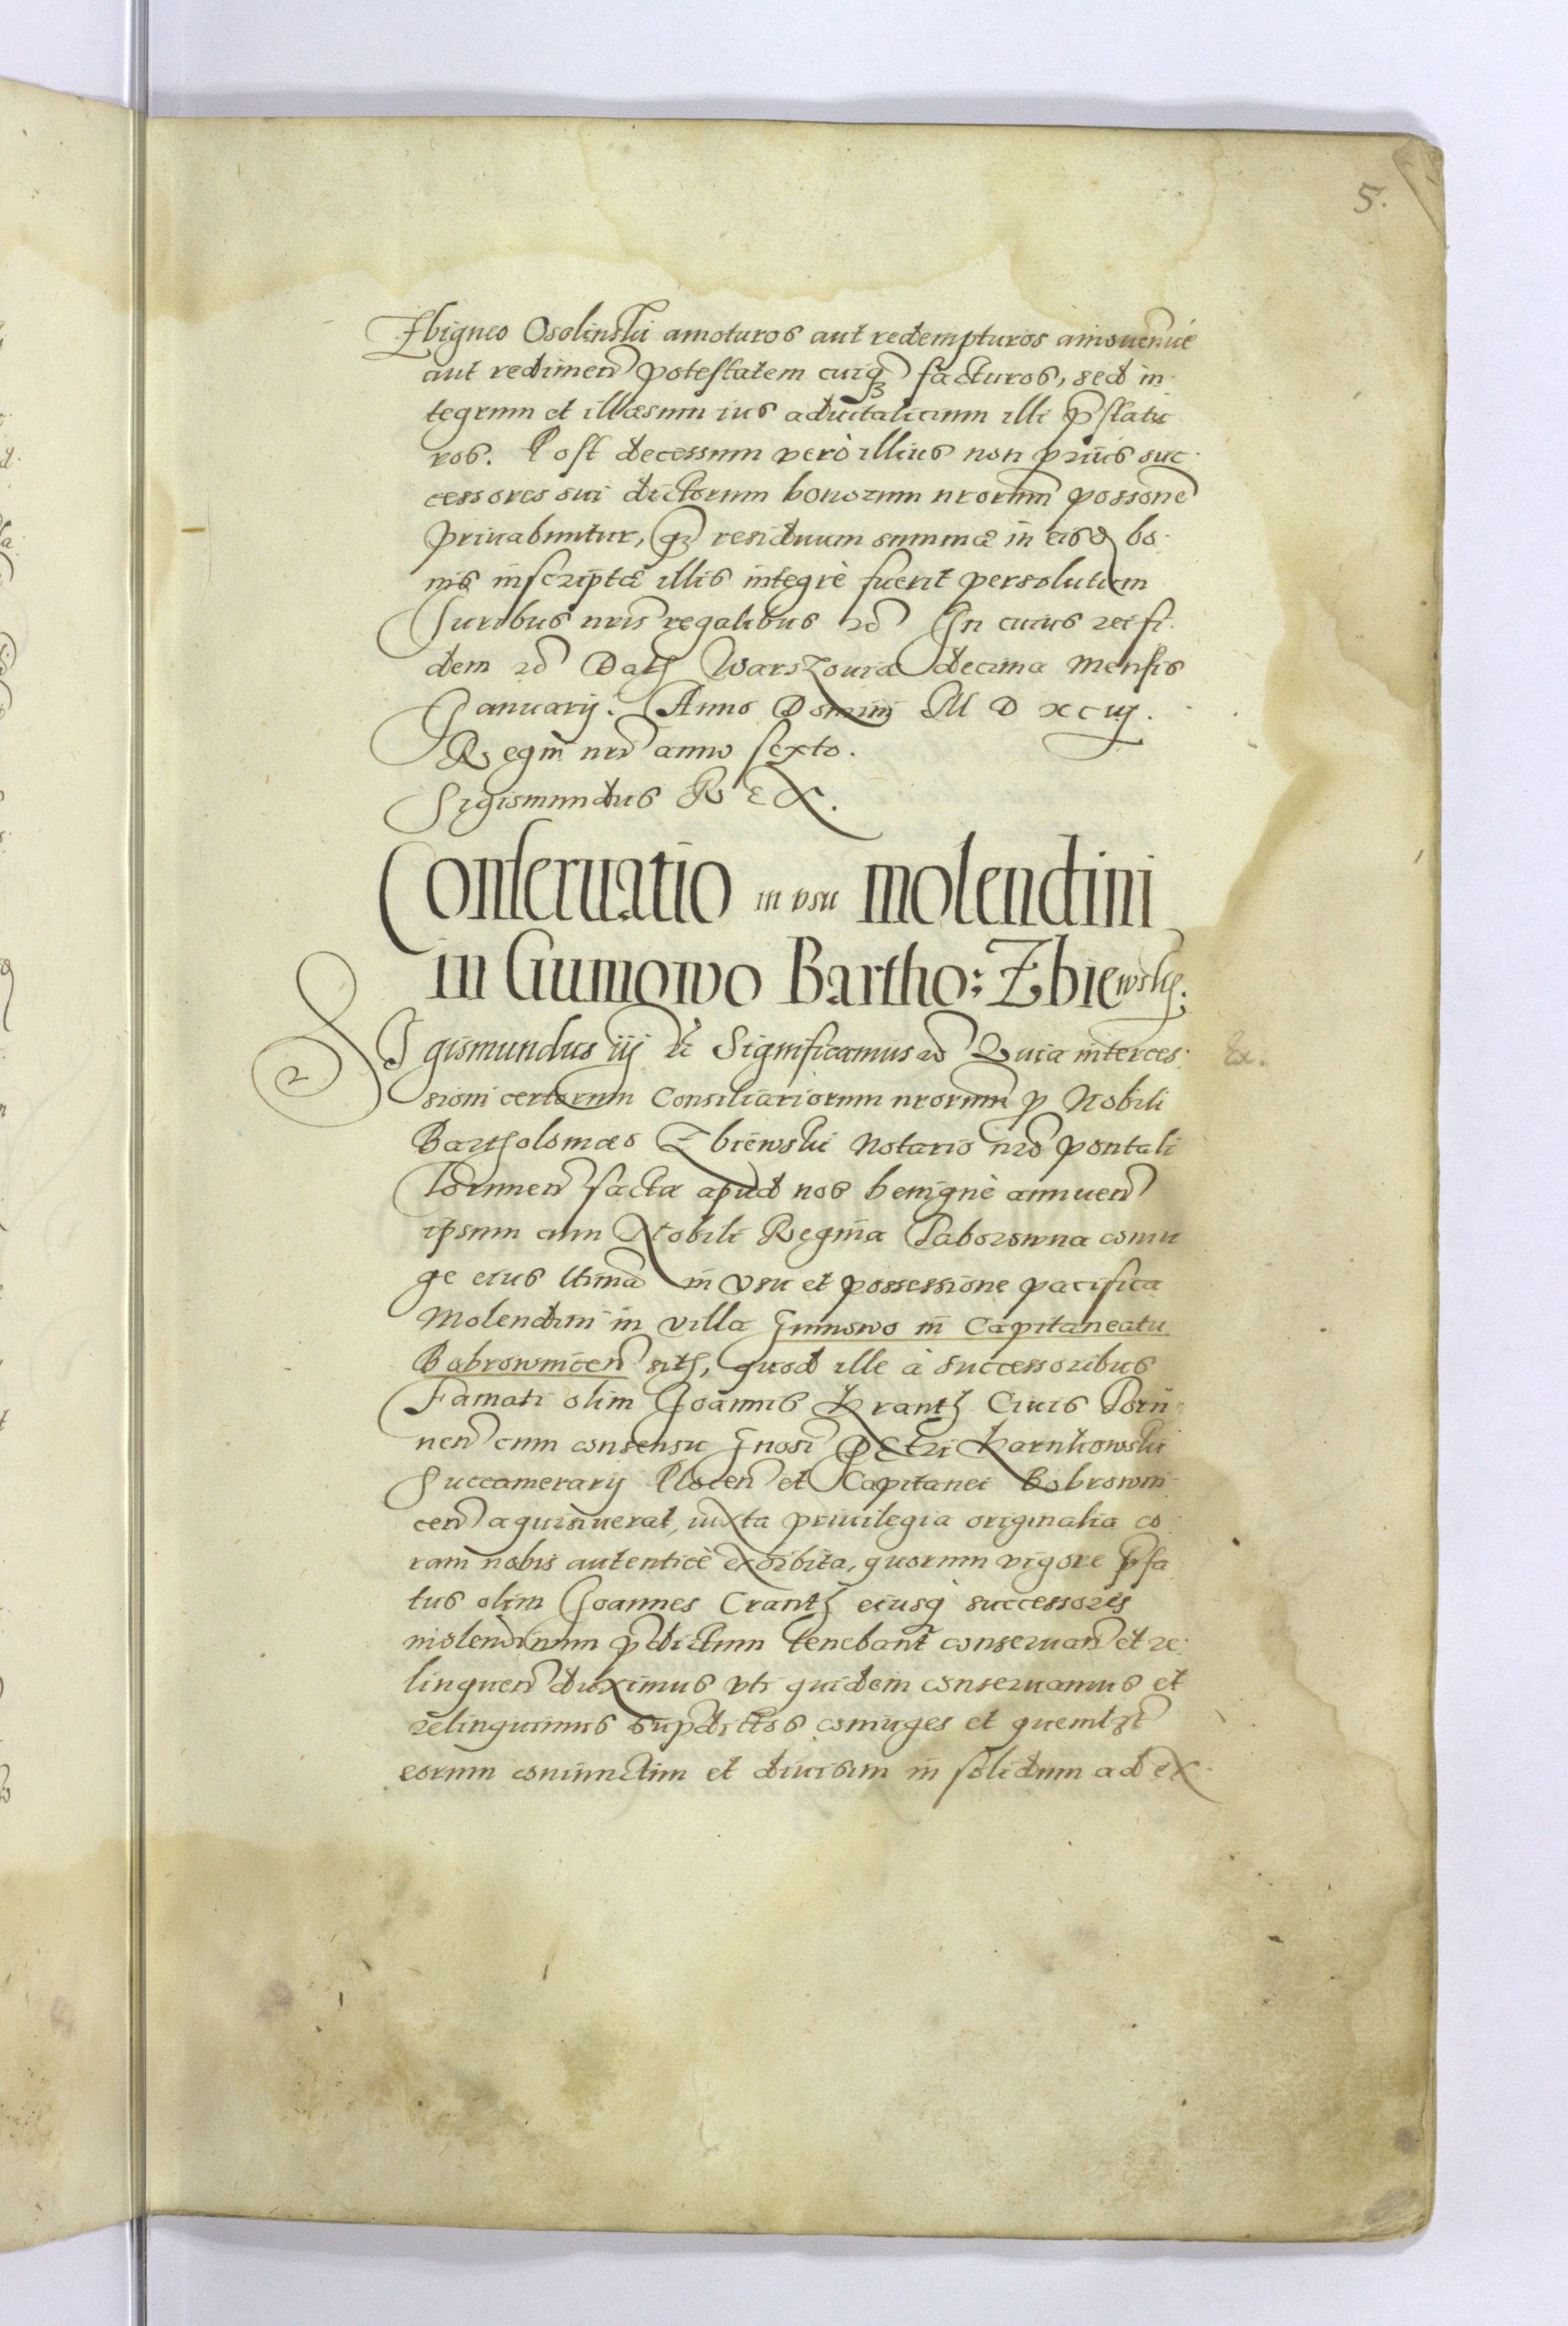 5.
Zbigneo Osolinski amoturos aut redempturos amovenđue
aut redimen̄ potestatem cuiq̨ facturos, sed in
tegrum et illæsum ius advitalicium illi p̄statu
ros. Post decessum verò illius non priùs suc
cessores sui dictorum bonorum nrorum possone
privabuntur, q̨ residuum summæ in eisd bo
nis inscriptæ illis integrè fuerit persolutum
Iuribus nris regalibus etc In cuius rei fi
dem etc Dat Warszoviæ decima Mensis
Ianuarij. Anno Domini M D XCIIJ.
Regni nri anno sexto.
Sigismundus REX.
Conservatio in vsu molendini
in Gumowo Bartho: Zbiewsky.
Sigismundus iij etc Significamus etc Quia interces
Ex.
sioni certorum Consiliariorum nrorum p Nobili
Bartholomæo Zbiewski Notario nro pontali
Torunen̄ factæ apud nos benignè annuen̄
ipsum cum Nobili Regina Taborowna coniu
ge eius ltima in vsu et possessione pacifica
Molendini in villa Gumowo in Capitaneatu
Bobrownicen̄ sit, quod ille à successoribus
Famati olim Ioannis Krantz Civis Toru
nen̄ cum consensu Gnosi Petri Karnkowski
Succamerarij Plocen̄ et Capitanei Bobrowni
cen̄ aquisiverat, iuxta privilegia originalia co
ram nobis autenticè exhibita, quorum vigore p̄fa
tus olim Ioannes Crantz eiusq̨ successores
molendinum p̄dictum tenebant conservan̄ et re
linquen̄ duximus vti quidem conservamus et
relinquimus sup̄dictos coniuges et quemlzt
eorum coniunctim et divisim in solidum ad ex